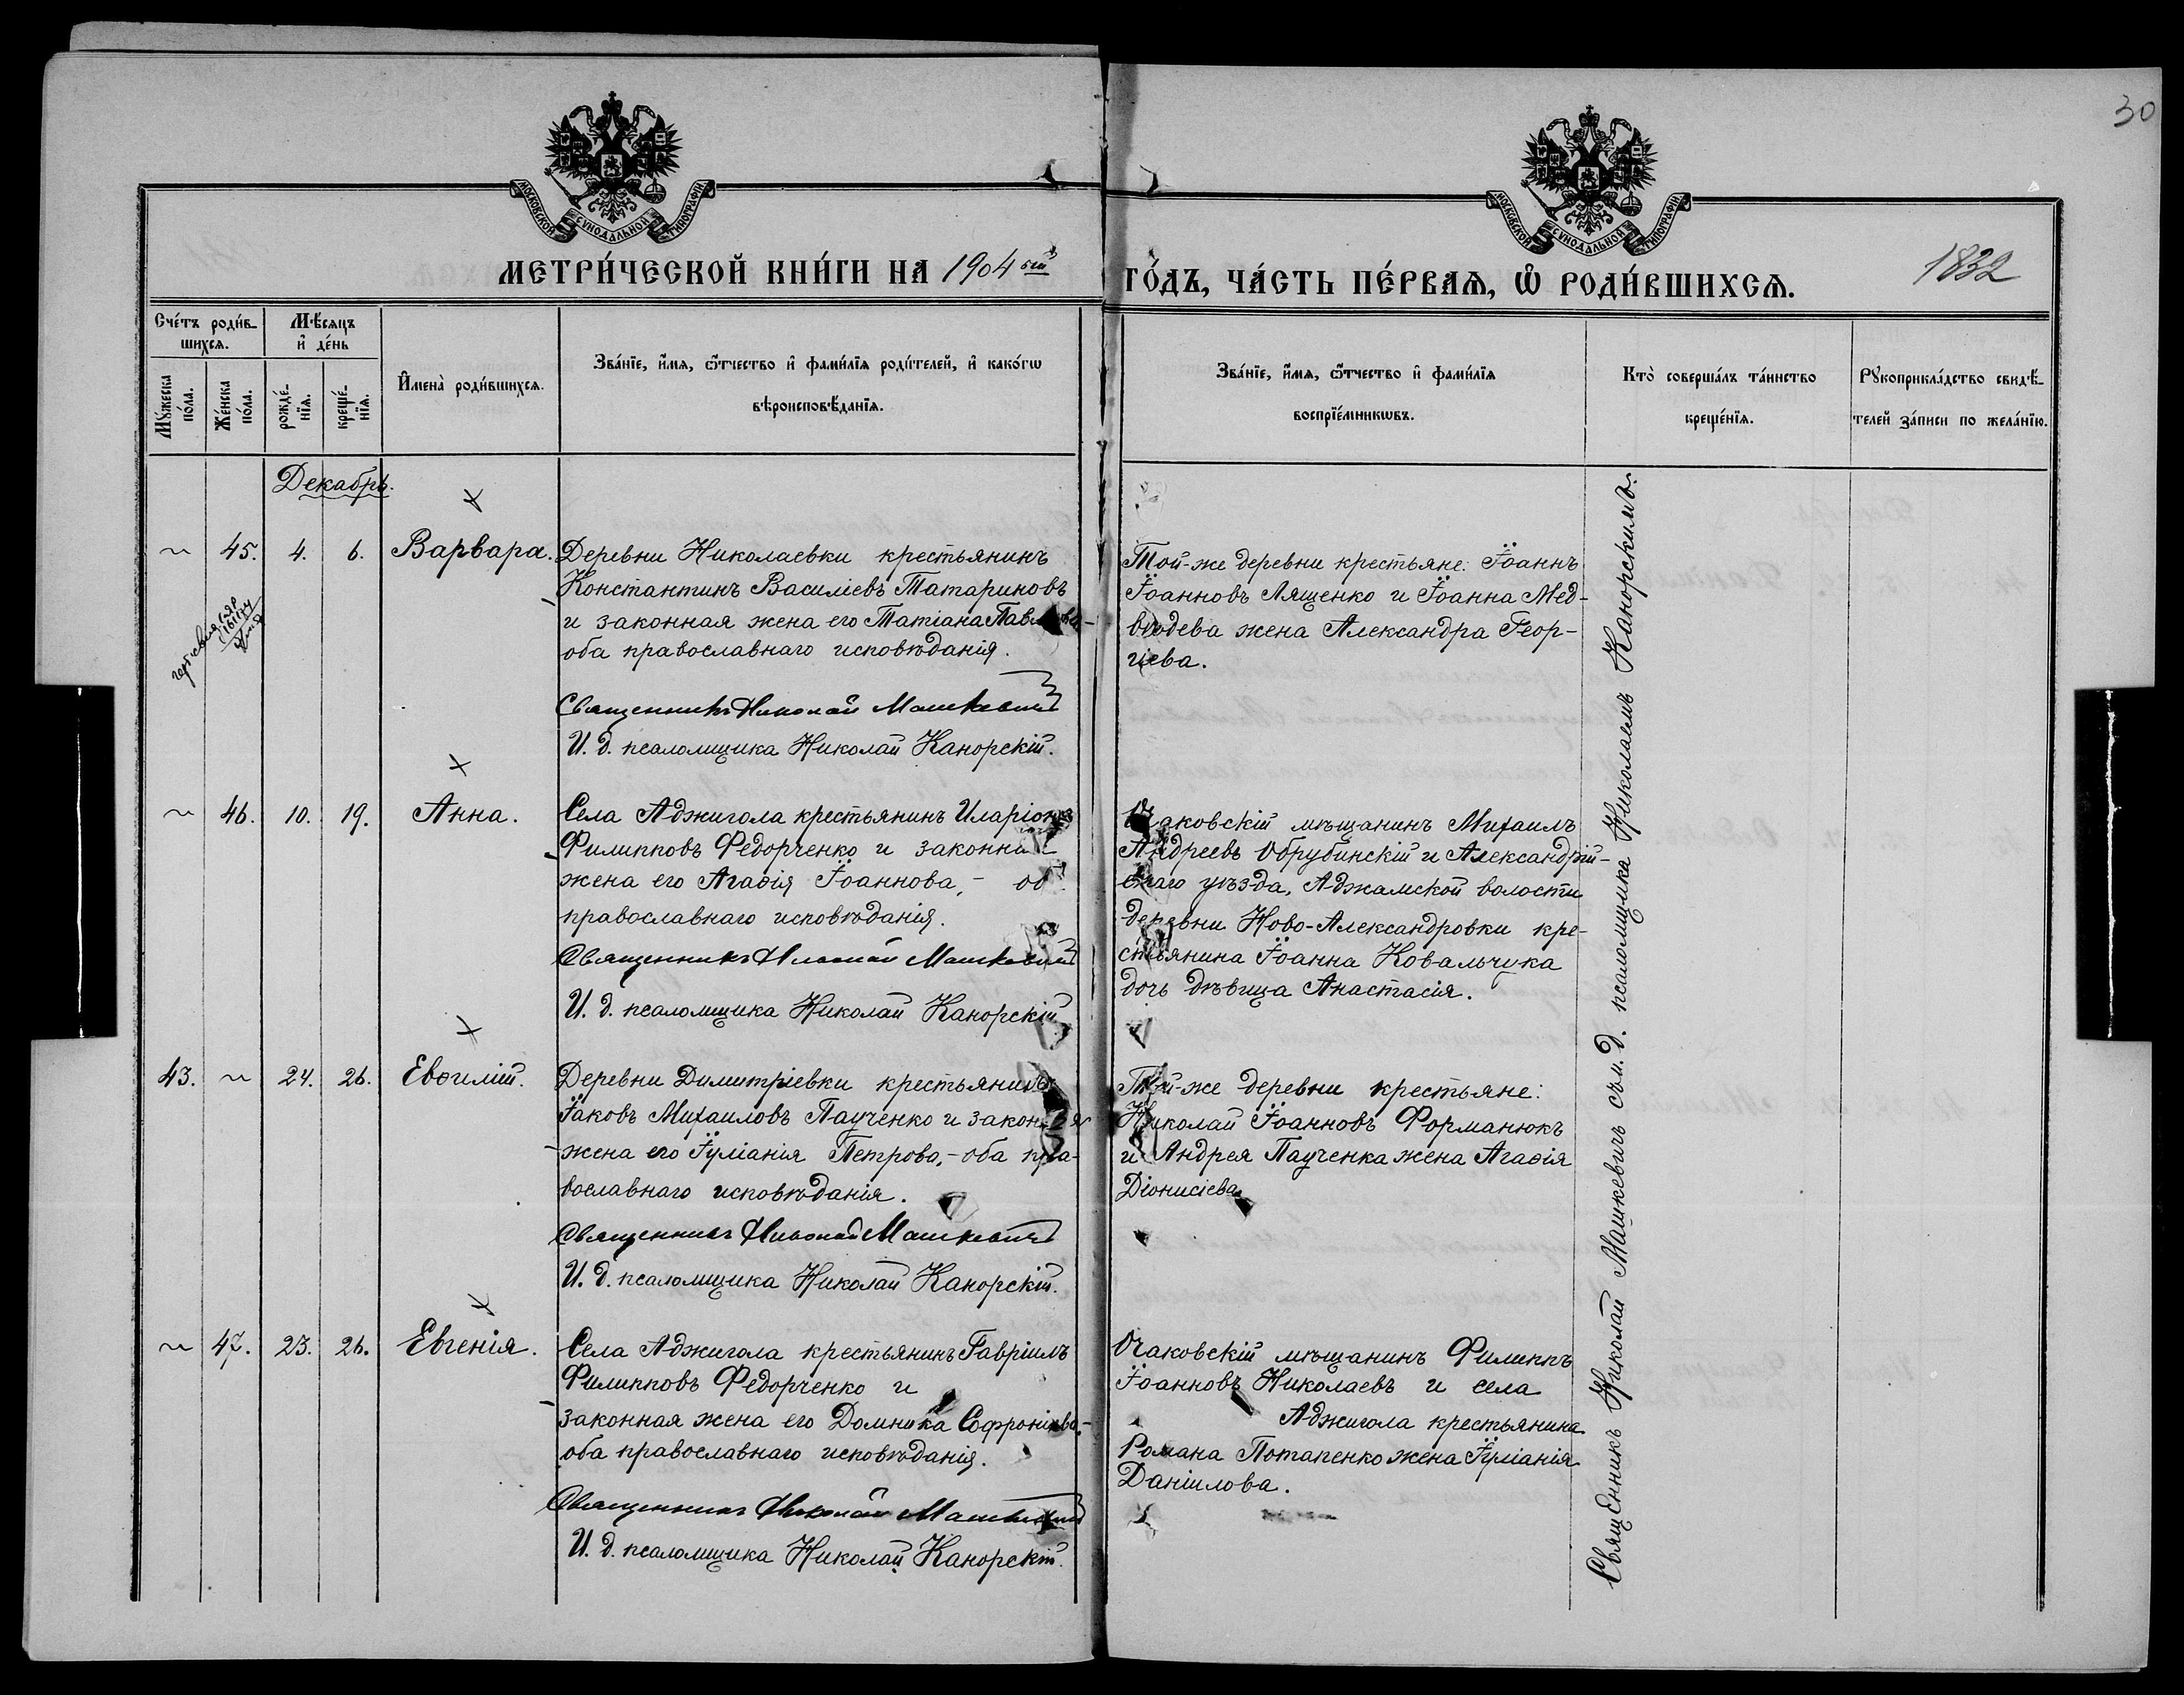 30
МОСКОВСКОЙ СУНОДАЛЬНОЙ ТИПОГРАФІИ
МОСКОВСКОЙ СУНОДАЛЬНОЙ ТИПОГРАФІИ
МЕТРИ́ЧЕСКОЙ КНИ́ГИ НА 1904 ый
ГО́ДЪ, ЧА́СТЬ ПЕ́РВАѦ, Ѡ҆ РОДИ́ВШИХСѦ.
1832
Сче́тъ роди́в-
шихсѧ.
Мѣ́сѧцъ
и҆ де́нь
Мꙋ́жеска
по́ла.
Же́нска
по́ла.
рожде́-
нїѧ.
креще́-
нїѧ.
И҆мена̀ роди́вшихсѧ.
Зва́нїе, и҆́мѧ, ѻ҆́тчество и҆ фами́лїѧ роди́телей, и҆ како́гѡ
вѣроисповѣ́данїѧ.
Зва́нїе, и҆́мѧ, ѻ҆́тчество и҆ фами́лїѧ
воспрїе́мникѡвъ.
Кто̀ соверша́лъ та́инство
креще́нїѧ.
Рꙋкоприкла́дство свидѣ́-
телей за́писи по жела́нїю.
Декабрь.
~ 45. 4. 6. Варвара.
Деревни Николаевки крестьянинъ
Константинъ Василіевъ Татариновъ
и законная жена его Татіана Павлова-
оба православнаго исповѣданія.
Священникъ Николай Машкевичъ
И. д. псаломщика Николай Канорскій.
Той-же деревни крестьяне: Іоаннъ
Іоанновъ Лященко и Іоанна Мед-
вѣдева жена Александра Геор-
гіева.
~ 46. 10. 19. Анна.
Села Аджигола крестьянинъ Иларіонъ
Филипповъ Федорченко и законная
жена его Агаѳія Іоаннова, - оба
православнаго исповѣданія.
Священникъ Николай Машкевичъ
И. д. псаломщика Николай Канорскій.
Очаковскій мѣщанинъ Михаилъ
Андреевъ Обрубинскій и Александрій-
скаго уѣзда, Аджамской волости
деревни Ново-Александровки кре-
стьянина Іоанна Ковальчука
дочь дѣвица Анастасія.
43. ~ 24. 26. Евѳилій.
Деревни Димитріевки крестьянинъ
Іаковъ Михаиловъ Паученко и законная
жена его Іуліанія Петрова, - оба пра-
вославнаго исповѣданія.
Священникъ Николай Машкевичъ
И. д. псаломщика Николай Канорскій.
Той-же деревни крестьяне:
Николай Іоанновъ Форманюкъ
и Андрея Паученка жена Агаѳія
Діонисіева
~ 47. 23. 26. Евгенія.
Села Аджигола крестьянинъ Гавріилъ
Филипповъ Федорченко и
законная жена его Домника Софроніева,-
оба православнаго исповѣданія.
Священникъ Николай Машкевичъ
И. д. псаломщика Николай Канорскій.
Очаковскій мѣщанинъ Филиппъ
Іоанновъ Николаевъ и села
Аджигола крестьянина
Романа Потапенко жена Іуліанія
Даніилова.
Священникъ Николай Машкевичъ съ и. д. псаломщика Николаемъ Канорскимъ.